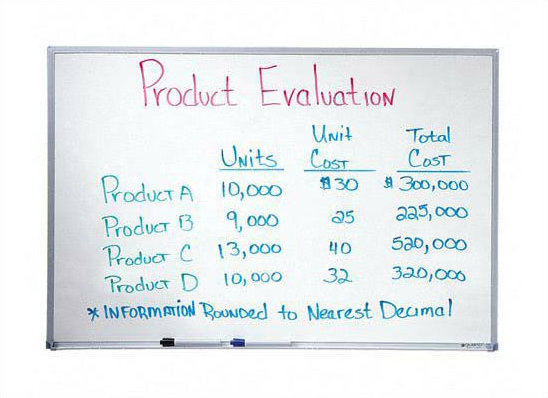 Product Evaluation
Unit Total
Units Cost Cost
Product A 10,000 $30 $300,000
Product B 9,000 25 225,000
Product C 13,000 40 520,000
Product D 10,000 32 320,000
* INFORMATION Rounded to Nearest Decimal